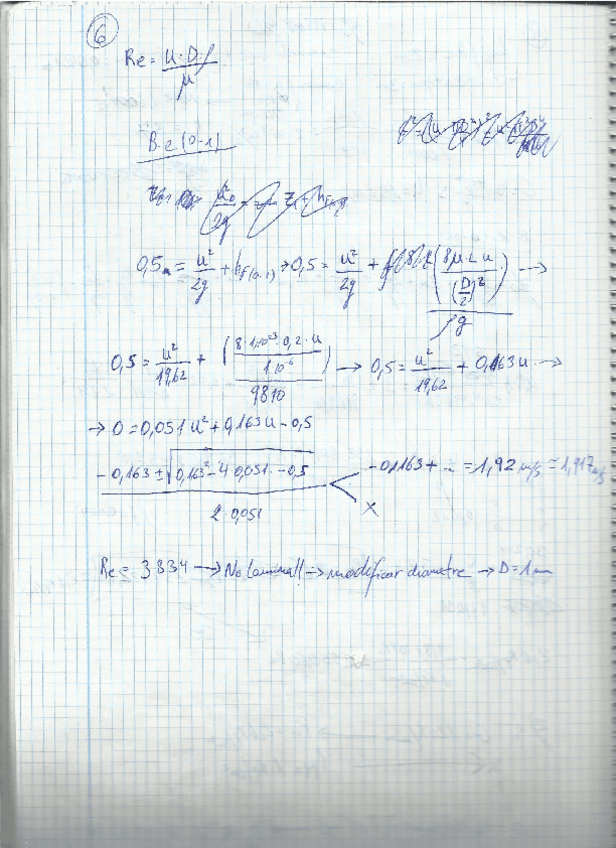 6
Re = u·D·ρ / μ
B.E (0-1)
0,5m = u²/2g + hf(0-1) → 0,5 = u²/2g + (8μ·L·u / (D/2)²) / ρg →
0,5 = u²/19,62 + (8·1·10⁻³·0,2·u / 1·10⁻⁶) / 9810 → 0,5 = u²/19,62 + 0,163u →
→ 0 = 0,051u² + 0,163u - 0,5
-0,163 ± √(0,163² - 4·0,051·-0,5) / 2·0,051 < -0,163 + ... = 1,92 m/s ≈ 1,917 m/s
X
Re = 3834 → No laminar!! → modificar diametre → D = 1mm